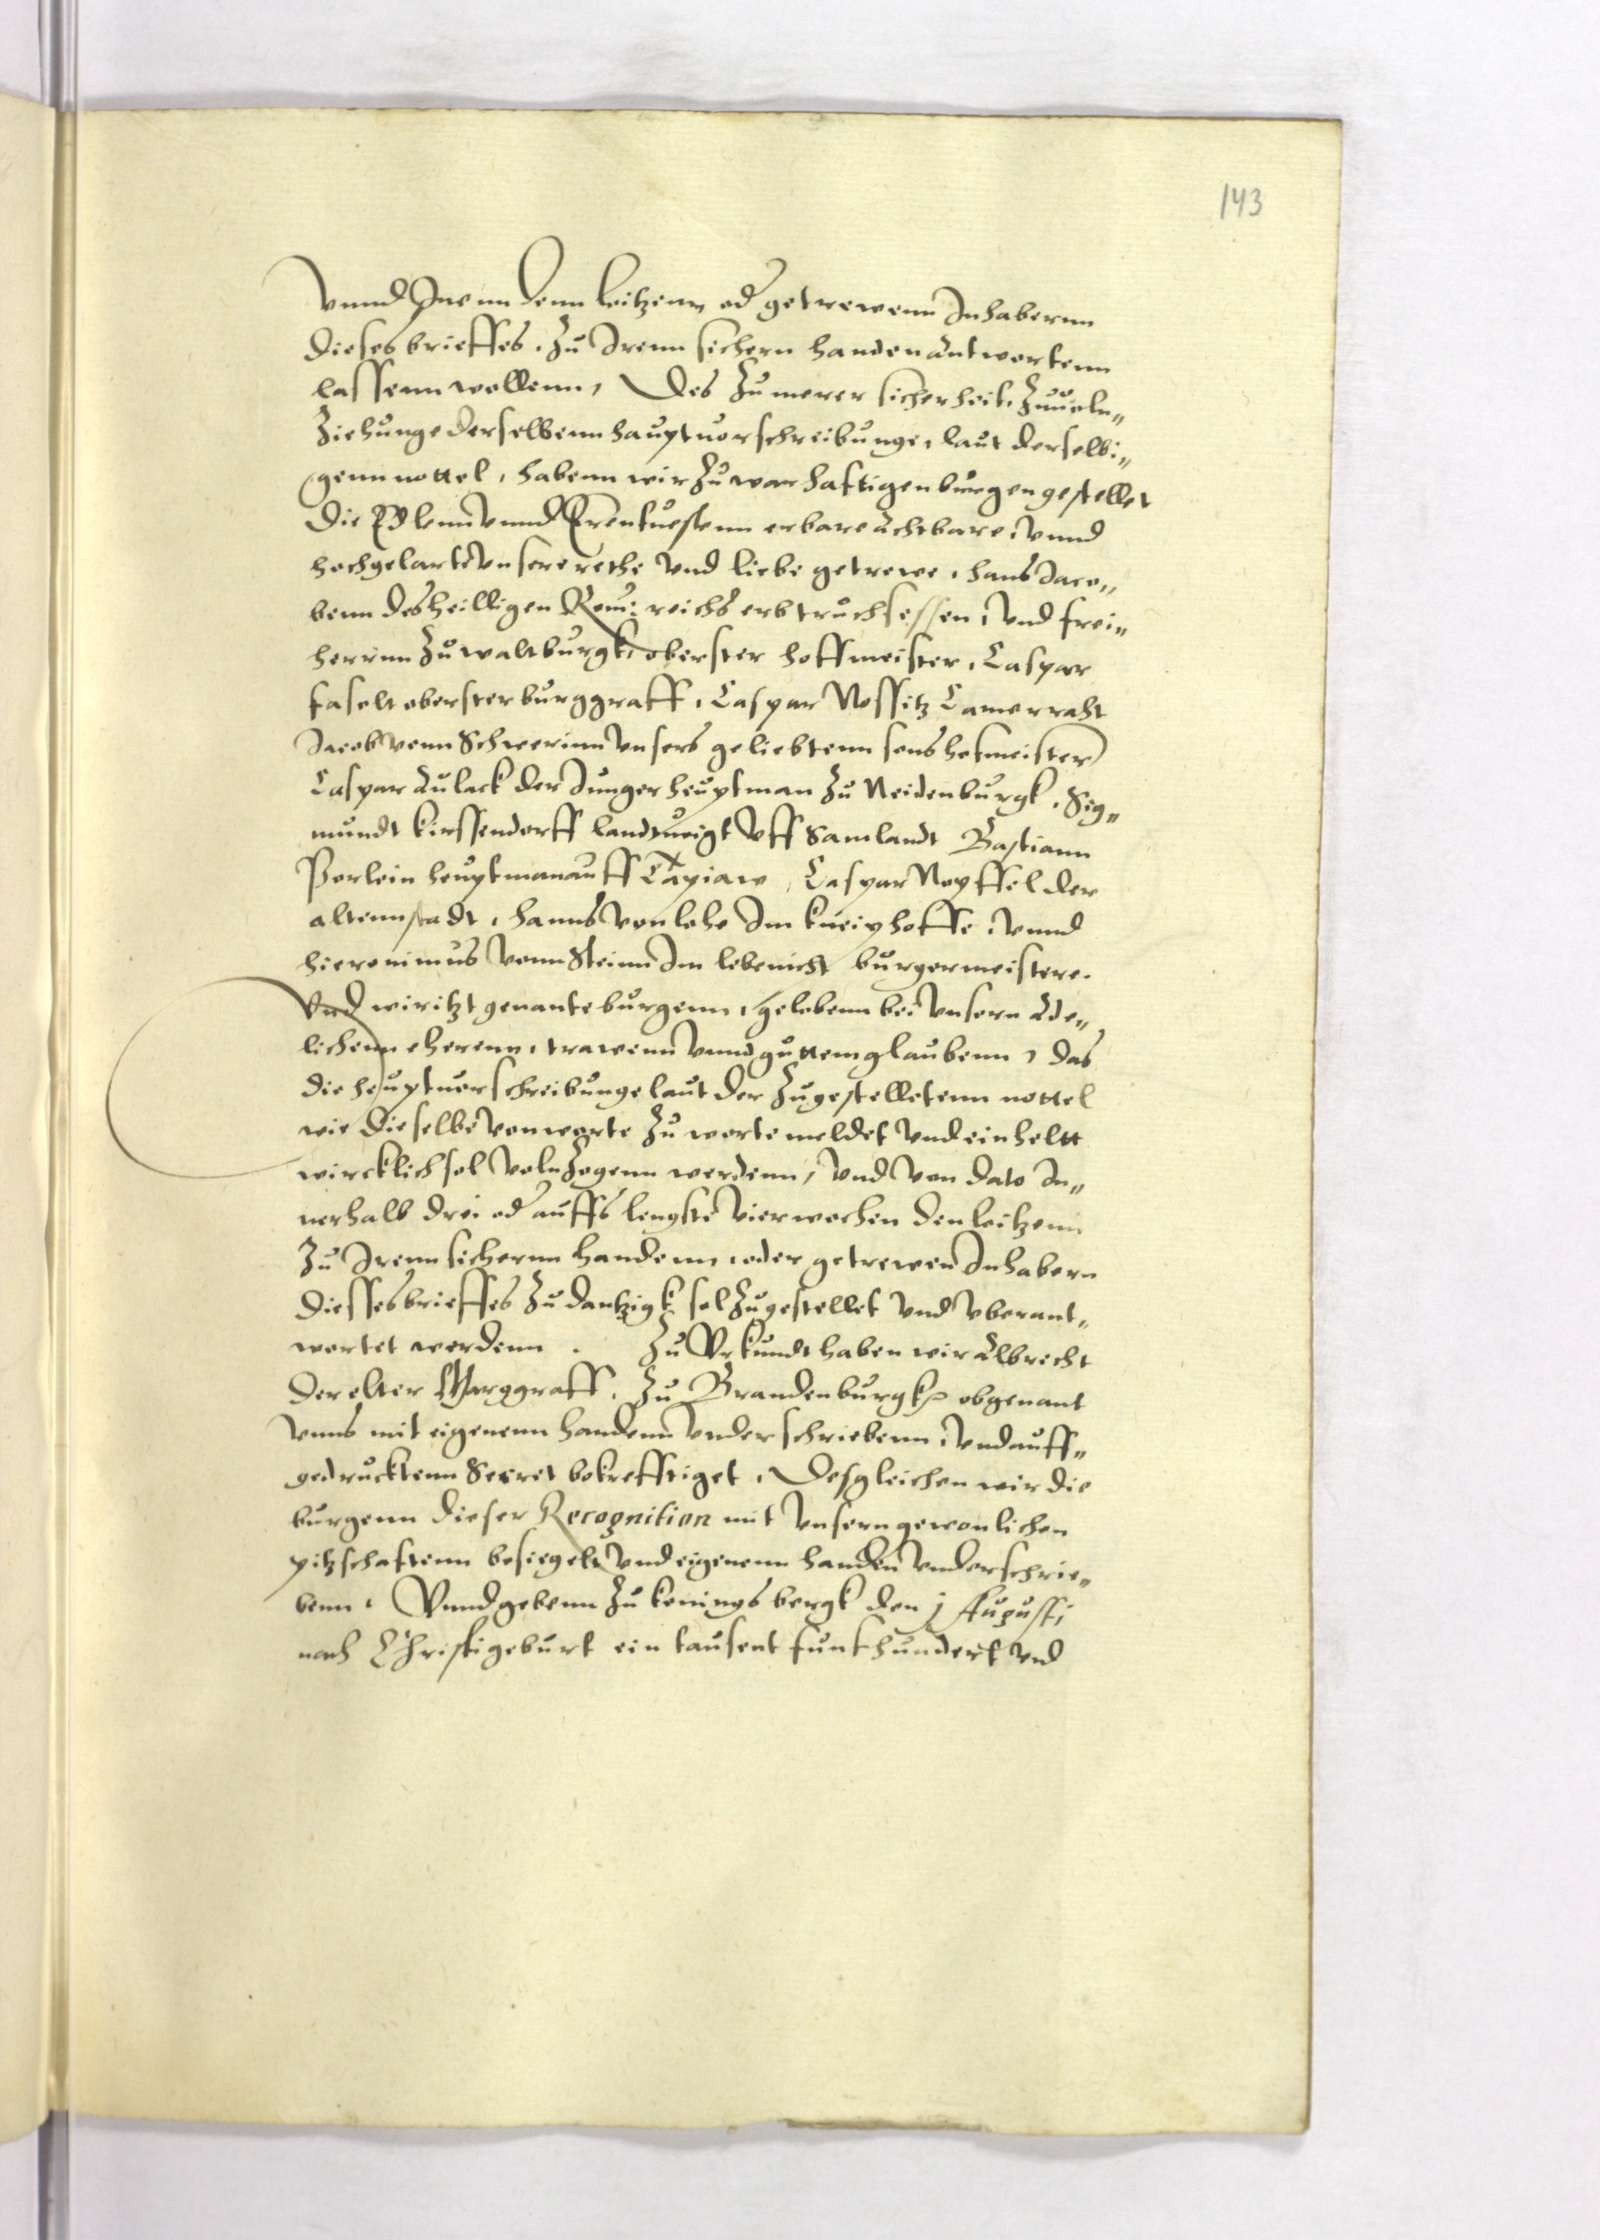 143
Vnnd Inen denn Leitzenn od getrewenn Inhabernn
dieses brieffes, zu Irenn sichern handen Antwortenn
lassenn wollenn, Des zu merer sicherheit, zuuoln„
ziehunge derselbenn hauptuorschreibunge, laut derselbi„
genn nottel, habenn wir zu warhaftigen burgen gestellet
die Edlenn vnnd Erenfuestenn erbare Achtbare, vnnd
hochgelarte vnsere rethe vnd liebe getrewe, hans Jaco„
benn des heilligen Rom: reichs erbtruchsessen, vnd frei„
herrnn zu waltburgk, oberster hoffmeister, Caspar
faselt oberster burggraff, Caspar Nossitz Camerraht
Jacob vonn Schwerinn vnsers geliebtenn sons hofmeister
Caspar Aulack der Junger heuptman zu Neidenburgk, Sig„
mundt kirssendorff landtuoigt vff Samlandt Bastiann
Perlein heuptman auff Tapiaw, Caspar Noyffel der
altennstadt, hanns von lohe Im kneiphoffe, vnnd
hieronimus vonn Steinn Im lebenicht burgermeistere.
Vnd wir itzt genante burgenn, gelobenn bei vnsern Ade„
lichenn eherenn, trawenn vnnd guttem glaubenn, das
die heuptuorschreibunge laut der zugestelletenn nottel
wie dieselbe von worte zu worte meldet vnd einheltt
wircklich sol volnzogenn werdenn, vnd von dato In„
nerhalb drei od auffs lengste vier wochen den leitzenn
zu Irenn sichernn handenn, oder getrewen Inhabern
diesses brieffes zu dantzigk sol zugestellet vnd vberant„
wortet werdenn. Zu Vrkundt haben wir Albrecht
der elter Marggraff, zu Brandenburgk obgenant
vnns mit eigenenn handenn vnderschriebenn, vnd auff„
gedrucktenn Secret bekrefftiget, Desgleichen wir die
burgenn dieser Recognition mit vnsern gewonlichen
pitzschaftenn besiegelt vnd eigenenn handen vnderschrie„
benn. Vnnd gebenn zu konigsbergk den j Augusti
nach Christi geburt ein tausent funfhundert vnd